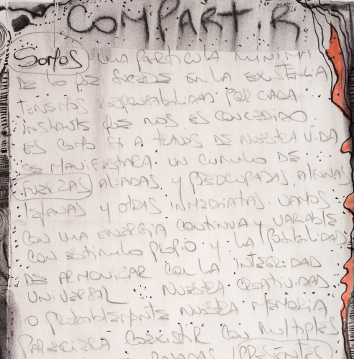 COMPARTIR
SOMOS UNA PARTICULA MINIMA
DE LO QUE SUCEDE EN LA EXISTENCIA
TENEMOS RESPONSABILIDAD POR CADA
INSTANTE QUE NOS ES CONCEDIDO
ES COMO SI A TRAVES DE NUESTRA VIDA
SE MANIFESTARA UN CUMULO DE
FUERZAS ALIADAS Y PREOCUPADAS ALGUNAS
LEJANAS Y OTRAS INMEDIATAS VAMOS
CON UNA ENERGIA CONTINUA Y VARIABLE
CON ESTIMULO PROPIO Y LA POSIBILIDAD
DE ARMONIZAR CON LA INTEGRIDAD
UNIVERSAL NUESTRA CREATIVIDAD
O PROBABLEMENTE NUESTRA MEMORIA
PARECIERA COEXISTIR CON MULTIPLES
PRESENTES